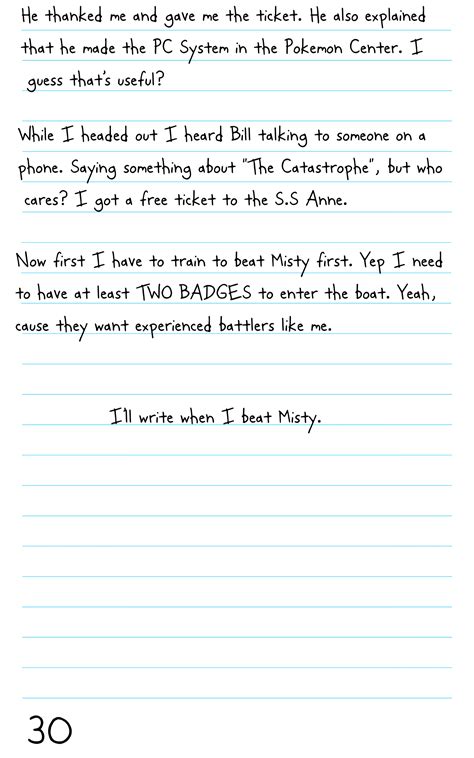 He thanked me and gave me the ticket. He also explained
that he made the PC System in the Pokemon Center. I
guess that's useful?
While I headed out I heard Bill talking to someone on a
phone. Saying something about "The Catastrophe", but who
cares? I got a free ticket to the S.S Anne.
Now first I have to train to beat Misty first. Yep I need
to have at least TWO BADGES to enter the boat. Yeah,
cause they want experienced battlers like me.
I'll write when I beat Misty.
30